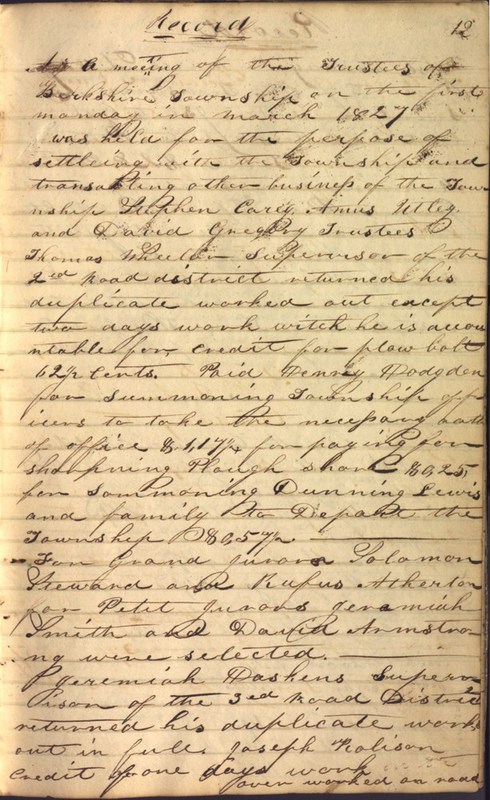 Record 12
At a meeting of the Trustees of
Berkshire Township on the first
monday in march 1827
was held for the perpose of
settleing with the Township and
transacting other business of the Tow
nship Stephen Carey Amus Utley
and David Gregory Trustees
Thomas Wheeler Supervisor of the
2ed Road district returned his
duplicate worked out except
two days work witch he is accou
ntable for, credit for plow bolt
62½ cents. Paid Henry Hodgden
for Summoning Township off
icers to take the necessary oath
of office $1,17½ for paying for
sharpning Plough share $0,25
for Sommoning Dunning Lewis
and family to Depart the
Township $0,57½
For Grand jurors Solomon
Steward and Rufus Atherton
for Petit Jurors Jeremiah
Smith and David Armstro
ng were selected.
Jeremiah Dashens Superv
isor of the 3ed Road District
returned his duplicate work
out in full. Joseph
Credit for one days work
over worked on road